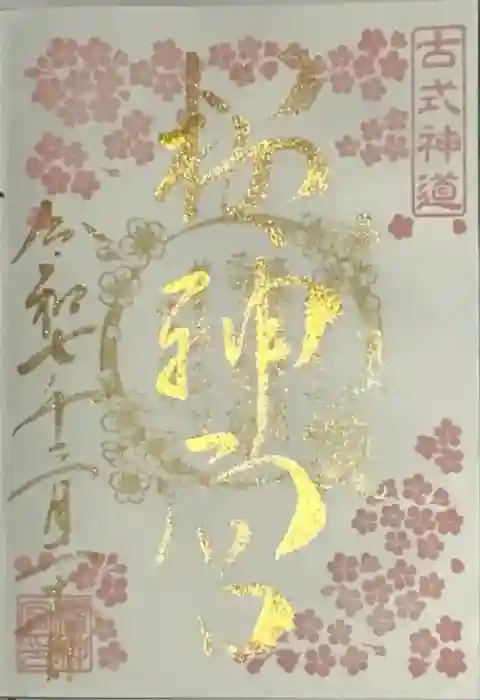 古式神道
桜神宮
令和七年十二月一日